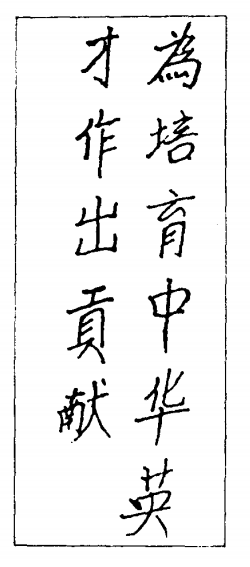 為培育中华英
才作出貢献